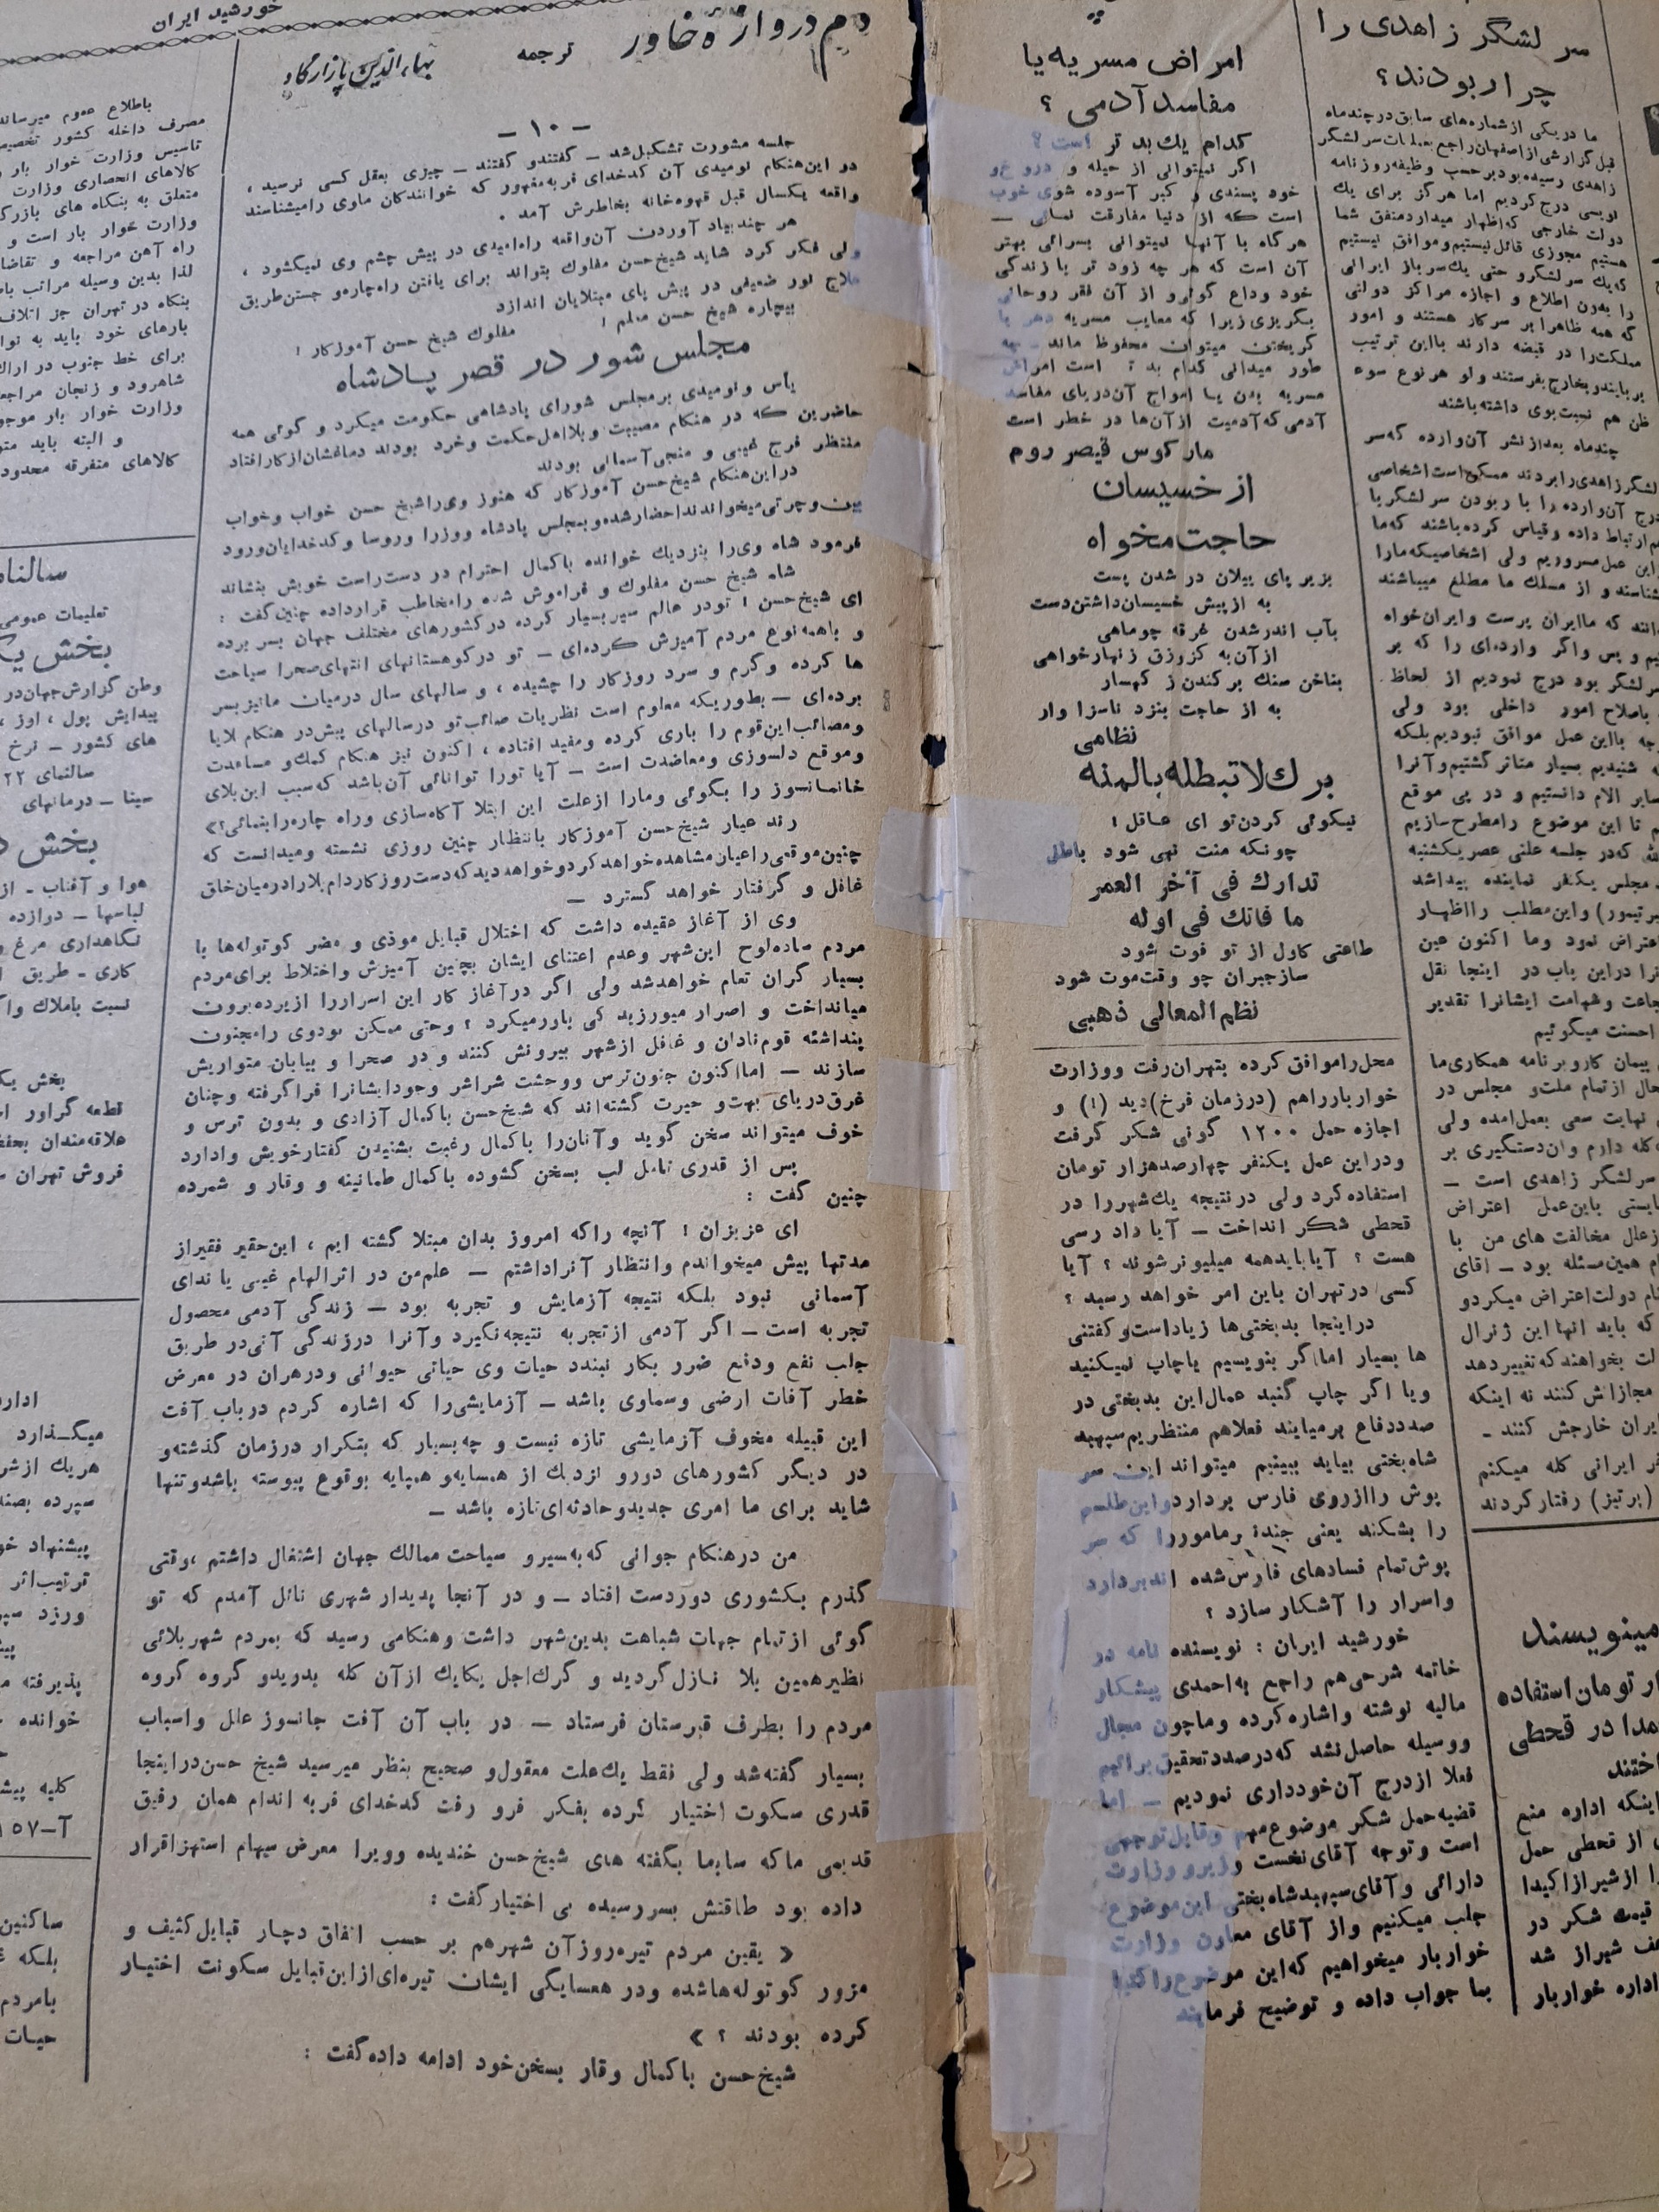 سر لشگر زاهدی را
چرا ربودند؟
ما در یکی از شماره‌های سابق در چند ماه
قبل گزارشی از اصفهان راجع بعملیات سرلشگر
زاهدی رسیده بود بر حسب وظیفه روزنامه
نویسی درج کردیم اما هرگز برای یك
دولت خارجی که اظهار میدارد متفق شما
هستیم مجوزی قائل نیستیم و موافق نیستیم
که یك سر لشگر و حتی یك سرباز ایرانی
را بدون اطلاع و اجازه مراکز دولتی
که همه ظاهرا بر سر کار هستند و امور
مملکت را در قبضه دارند باین ترتیب
بربایند و بخارج بفرستند ولو هر نوع سوء
ظن هم نسبت بوی داشته باشند
چند ماه بعد از نشر آن وارده که سر
لشگر زاهدی را بردند ممکن است اشخاصی
درج آن وارده را با ربودن سر لشگر با
هم ارتباط داده و قیاس کرده باشند که ما
این عمل مسروریم ولی اشخاصیکه ما را
شناسند و از مسلك ما مطلع میباشند
دانند که ما ایران پرست و ایران خواه
یم و بس و اگر وارده‌ای را که بر
سر لشگر بود درج نمودیم از لحاظ
باصلاح امور داخلی بود ولی
وجه با این عمل موافق نبودیم بلکه
شنیدیم بسیار متاثر گشتیم و آنرا
سایر الام دانستیم و در پی موقع
م تا این موضوع را مطرح سازیم
که در جلسه علنی عصر یکشنبه
مجلس یکنفر نماینده پیدا شد
تیمور) و این مطلب را اظهار
اعتراض نمود و ما اکنون عین
را در این باب در اینجا نقل
جاعت و شهامت ایشانرا تقدیر
احسنت میگوئیم
پیمان کار و برنامه همکاری ما
حال از تمام ملت و مجلس در
نهایت سعی بعمل امده ولی
گله دارم و ان دستگیری بر
سر لشگر زاهدی است –
بایستی باین عمل اعتراض
از علل مخالفت های من با
م همین مسئله بود – اقای
نام دولت اعتراض میکرد و
که باید انها این ژنرال
لت بخواهند که تغییر دهد
مجازاش کنند نه اینکه
ایران خارجش کنند –
فر ایرانی گله میکنم
(برتیز) رفتار کردند
مینویسند
ار تومان استفاده
را در قحطی
انداختند
اینکه اداره منع
از قحطی حمل
را از شیراز اکیدا
قیمت شکر در
شیراز شد
اداره خواربار
امراض مسریه یا
مفاسد آدمی ؟
کدام یك بد تر است ؟
اگر نمیتوانی از حیله و دروغ و
خود پسندی و کبر آسوده شوی خوب
است که از دنیا مفارقت نمائی –
هرگاه با آنها نمیتوانی بسرائی بهتر
آن است که هر چه زود تر با زندگی
خود وداع گوئی و از آن فقر روحانی
بگریزی زیرا که معایب مسریه دهر با
گریختن میتوان محفوظ ماند –
طور میدانی کدام بد تر است امراض
مسریه بدن یا امواج آن دریای مفاسد
آدمی که آدمیت از آن‌ها در خطر است
مارکوس قیصر روم
از خسیسان
حاجت مخواه
بزیر پای پیلان در شدن پست
به از پیش خسیسان داشتن دست
بآب اندر شدن غرقه چو ماهی
از آن به کز وزق زنهار خواهی
بناخن سنك بر کندن ز کهسار
به از حاجت بنزد ناسزا وار
نظامی
برك لا تبطله بالمنه
نیکوئی کردن تو ای عاقل !
چونکه منت نهی شود باطل
تدارك فی آخر العمر
ما فاتك فی اوله
طاعتی کاول از تو فوت شود
ساز جبران چو وقت موت شود
نظم المعالی ذهبی
محل را موافق کرده بتهران رفت و وزارت
خواربار را هم (در زمان فرخ) دید (!) و
اجازه حمل ۱۲۰۰ گونی شکر گرفت
و در این عمل یکنفر چهارصد هزار تومان
استفاده کرد ولی در نتیجه یك شهر را در
قحطی شکر انداخت – آیا داد رسی
هست ؟ آیا باید همه میلیونر شوند ؟ آیا
کسی در تهران باین امر خواهد رسید ؟
در اینجا بدبختی‌ها زیاد است و گفتنی
ها بسیار اما گر بنویسیم یا چاپ نمیکنید
و یا اگر چاپ کنید عمال این بدبختی در
صدد دفاع بر میایند فعلا هم منتظریم سپهبد
شاه بختی بیاید ببینیم میتواند این سر
پوش را از روی فارس بردارد و این طلسم
را بشکند یعنی چند نفر مامور را که سر
پوش تمام فسادهای فارس شده اند بردارد
و اسرار را آشکار سازد ؟
خورشید ایران : نویسنده نامه در
خاتمه شرحی هم راجع به احمدی پیشکار
مالیه نوشته و اشاره کرده و ما چون مجال
و وسیله حاصل نشد که در صدد تحقیق برائیم
فعلا از درج آن خودداری نمودیم – اما
قضیه حمل شکر موضوع مهم و قابل توجهی
است و توجه آقای نخست وزیر و وزارت
دارائی و آقای سپهبد شاه بختی این موضوع
جلب میکنیم و از آقای معاون وزارت
خواربار میخواهیم که این موضوع را اکیدا
بما جواب داده و توضیح فرمایند
خورشید ایران
دم دروازه خاور
ترجمه
بهاء الدین پازارگاد
– ۱۰ –
جلسه مشورت تشکیل شد – گفتند و گفتند – چیزی بعقل کسی نرسید ،
در این هنگام نومیدی آن کدخدای فربه مغرور که خوانندگان ماوی را میشناسند
واقعه یکسال قبل قهوه‌خانه بخاطرش آمد .
هر چند بیاد آوردن آن واقعه راه امیدی در پیش چشم وی نمیگشود ،
ولی فکر کرد شاید شیخ حسن مفلوك بتواند برای یافتن راه چاره و جستن طریق
علاج نور ضعیفی در پیش پای مبتلایان اندازد
بیچاره شیخ حسن معلم !
مفلوك شیخ حسن آموزکار !
مجلس شور در قصر پادشاه
یأس و نومیدی بر مجلس شورای پادشاهی حکومت میکرد و گوئی همه
حاضرین که در هنگام مصیبت و بلا اهل حکمت و خرد بودند دماغشان از کار افتاد
منتظر فرج غیبی و منجی آسمانی بودند
در این هنگام شیخ حسن آموزکار که هنوز وی را شیخ حسن خواب و خواب
بین و چرتی میخواندند احضار شده و بمجلس پادشاه و وزرا و روسا و کدخدایان ورود
فرمود شاه وی را بنزدیك خوانده با کمال احترام در دست راست خویش بنشاند
شاه شیخ حسن مفلوك و فراموش شده را مخاطب قرار داده چنین گفت :
ای شیخ حسن ! تو در عالم سیر بسیار کرده در کشورهای مختلف جهان بسر برده
و با همه نوع مردم آمیزش کرده‌ای – تو در کوهستانهای انتهای صحرا سیاحت
ها کرده و گرم و سرد روزگار را چشیده ، و سالهای سال در میان ما نیز بسر
برده‌ای – بطوریکه معلوم است نظریات صائب تو در سالهای پیش در هنگام بلایا
و مصائب این قوم را یاری کرده و مفید افتاده ، اکنون نیز هنگام کمك و مساعدت
و موقع دلسوزی و معاضدت است – آیا تو را توانائی آن باشد که سبب این بلای
خانمانسوز را بگوئی و ما را از علت این ابتلا آگاه سازی و راه چاره را بنمائی؟»
رند عیار شیخ حسن آموزکار بانتظار چنین روزی نشسته و میدانست که
چنین موقعی را عیان مشاهده خواهد کرد و خواهد دید که دست روزگار دام بلا را در میان خلق
غافل و گرفتار خواهد گسترد –
وی از آغاز عقیده داشت که اختلال قبایل موذی و مضر کوتوله‌ها با
مردم ساده‌لوح این شهر و عدم اعتنای ایشان بچنین آمیزش و اختلاط برای مردم
بسیار گران تمام خواهد شد ولی اگر در آغاز کار این اسرار را از پرده برون
میانداخت و اصرار میورزید کی باور میکرد ؟ و حتی ممکن بود وی را مجنون
پنداشته قوم نادان و غافل از شهر بیرونش کنند و در صحرا و بیابان متواریش
سازند – اما اکنون چون ترس و وحشت شراشر وجود ایشانرا فرا گرفته و چنان
غرق دریای بهت و حیرت گشته‌اند که شیخ حسن با کمال آزادی و بدون ترس و
خوف میتواند سخن گوید و آنان را با کمال رغبت بشنیدن گفتار خویش وادارد
پس از قدری تامل لب بسخن گشوده با کمال طمانینه و وقار و شمرده
چنین گفت :
ای عزیزان ! آنچه را که امروز بدان مبتلا گشته ایم ، این حقیر فقیر از
مدتها پیش میخواندم و انتظار آنرا داشتم – علم من در اثر الهام غیبی یا ندای
آسمانی نبود بلکه نتیجه آزمایش و تجربه بود – زندگی آدمی محصول
تجربه است – اگر آدمی از تجربه نتیجه نگیرد و آنرا در زندگی آنی در طریق
جلب نفع و دفع ضرر بکار نبندد حیات وی حیاتی حیوانی و در هر ان در معرض
خطر آفات ارضی و سماوی باشد – آزمایشی را که اشاره کردم در باب آفت
این قبیله مخوف آزمایشی تازه نیست و چه بسیار که بتکرار در زمان گذشته و
در دیگر کشورهای دور و نزدیك از همسایه و همپایه بوقوع پیوسته باشد و تنها
شاید برای ما امری جدید و حادثه‌ای تازه باشد –
من در هنگام جوانی که به سیر و سیاحت ممالك جهان اشتغال داشتم ، وقتی
گذرم بکشوری دوردست افتاد – و در آنجا پدیدار شهری نائل آمدم که تو
گوئی از تمام جهات شباهت بدین شهر داشت و هنگامی رسید که بمردم شهر بلائی
نظیر همین بلا نازل گردید و گرك اجل یکایك از آن گله بدوید و گروه گروه
مردم را بطرف قبرستان فرستاد – در باب آن آفت جانسوز علل و اسباب
بسیار گفته شد ولی فقط یك علت معقول و صحیح بنظر میرسید شیخ حسن در اینجا
قدری سکوت اختیار کرده بفکر فرو رفت کدخدای فربه اندام همان رفیق
قدیمی ما که سابقا بگفته های شیخ حسن خندیده و ویرا معرض سهام استهزا قرار
داده بود طاقتش بسر رسیده بی اختیار گفت :
« یقین مردم تیره‌روز آن شهر هم بر حسب اتفاق دچار قبایل کثیف و
مزور کوتوله‌ها شده و در همسایگی ایشان تیره‌ای از این قبایل سکونت اختیار
کرده بودند ؟ »
شیخ حسن با کمال وقار بسخن خود ادامه داده گفت :
باطلاع عموم میرساند
مصرف داخله کشور تخصیص
تاسیس وزارت خوار بار
کالاهای انحصاری وزارت
متعلق به بنگاه های بازرگ
وزارت خوار بار است و
راه آهن مراجعه و تقاضا
لذا بدین وسیله مراتب با
بنگاه در تهران جز اتلاف
بارهای خود باید به نوا
برای خط جنوب در اراك
شاهرود و زنجان مراجعه
وزارت خوار بار موجو
و البته باید متو
کالاهای متفرقه محدود
سالنامه
تعلیمات عمومی
بخش یك
وطن گزارش جهان در
پیدایش پول ، اوز ،
های کشور – نرخ
سالنمای ۲۲
سینا – درمانهای
بخش د
هوا و آفتاب – از
لباسها – دوازده
نگاهداری مرغ و
کاری – طریق
نسبت باملاك وا
بخش یك
قطعه گراور
علاقه‌مندان بحفظ
فروش تهران
اداره
میگذارد
هریك از شر
سپرده بصند
پیشنهاد خو
ترتیب اثر
ورزد سپر
پیش
پذیرفته
خوانده
کلیه پیش
آ–۱۵۷
ساکنین
بلکه
بامردم
حیات